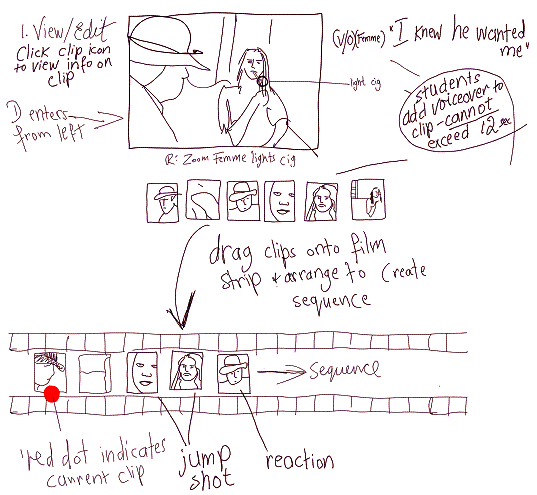 1. View/Edit
Click clip icon
to view info on
clip
D enters
from left
(V/O)(Femme) "I knew he wanted
me"
light cig
students
add voiceover to
clip - cannot
exceed 12 sec
R: Zoom Femme lights cig
drag clips onto film
strip + arrange to create
sequence
sequence
'red dot indicates
current clip
jump
shot
reaction